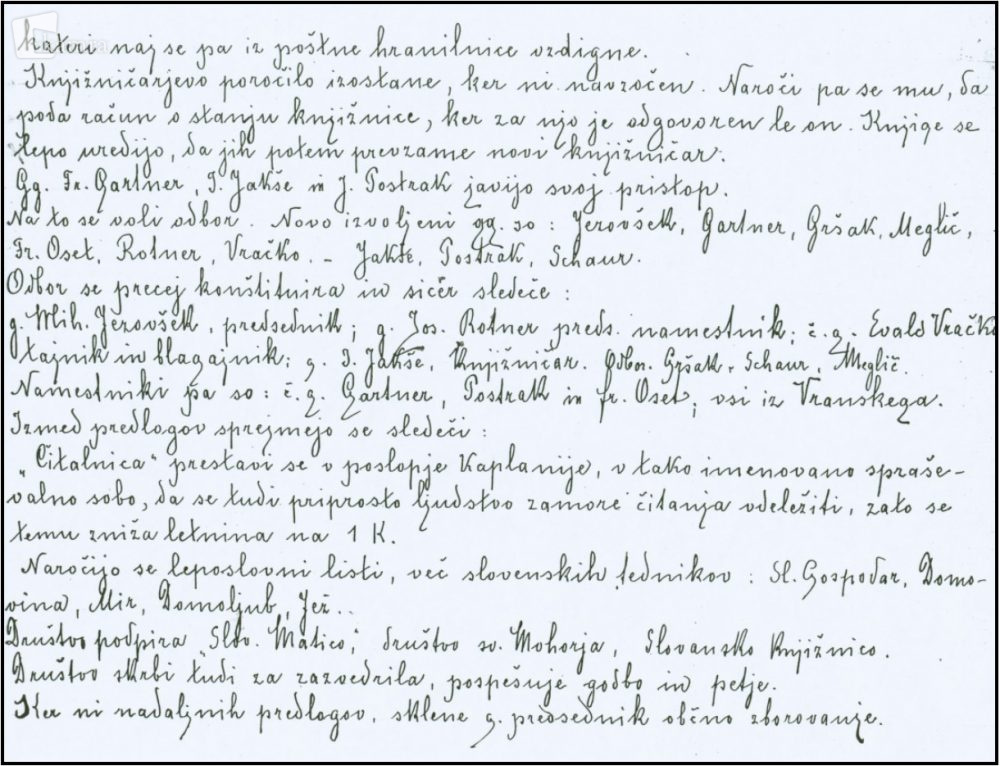 kateri naj se pa iz poštne hranilnice vzdigne.
Knjižničarjevo poročilo izostane, ker ni navzočen. Naroči pa se mu, da
poda račun o stanju knjižnice, ker za njo je odgovoren le on. Knjige se
lepo uredijo, da jih potem prevzame novi knjižničar.
Gg. Fr. Gartner, I. Jakše in J. Postrak javijo svoj pristop.
Na to se voli odbor. Novo izvoljeni gg. so: Jerovšek, Gartner, Gršak, Meglič,
Fr. Oset, Rotner, Vračko. – Jakše, Postrak, Schaur.
Odbor se precej konštituira in sicer sledeče:
g. Mih. Jerovšek, predsednik; g. Jos. Rotner preds. namestnik; č. g. Evald Vračko
tajnik in blagajnik; g. I. Jakše, knjižničar. Odbor. Gršak, Schaur, Meglič.
Namestniki pa so: č. g. Gartner, Postrak in fr. Oset; vsi iz Vranskega.
Izmed predlogov sprejmejo se sledeči:
„Čitalnica“ prestavi se v poslopje Kaplanije, v tako imenovano spraše-
valno sobo, da se tudi priprosto ljudstvo zamore čitanja vdeležiti, zato se
temu zniža letnina na 1 K.
Naročijo se leposlovni listi, več slovenskih tednikov: Sl. Gospodar, Domo-
vina, Mir, Domoljub, Jež..
Društvo podpira „Slov. Matico“, društvo sv. Mohorja, Slovansko knjižnico.
Društvo skrbi tudi za razvedrila, pospešuje godbo in petje.
Ker ni nadaljnih predlogov, sklene g. predsednik občno zborovanje.